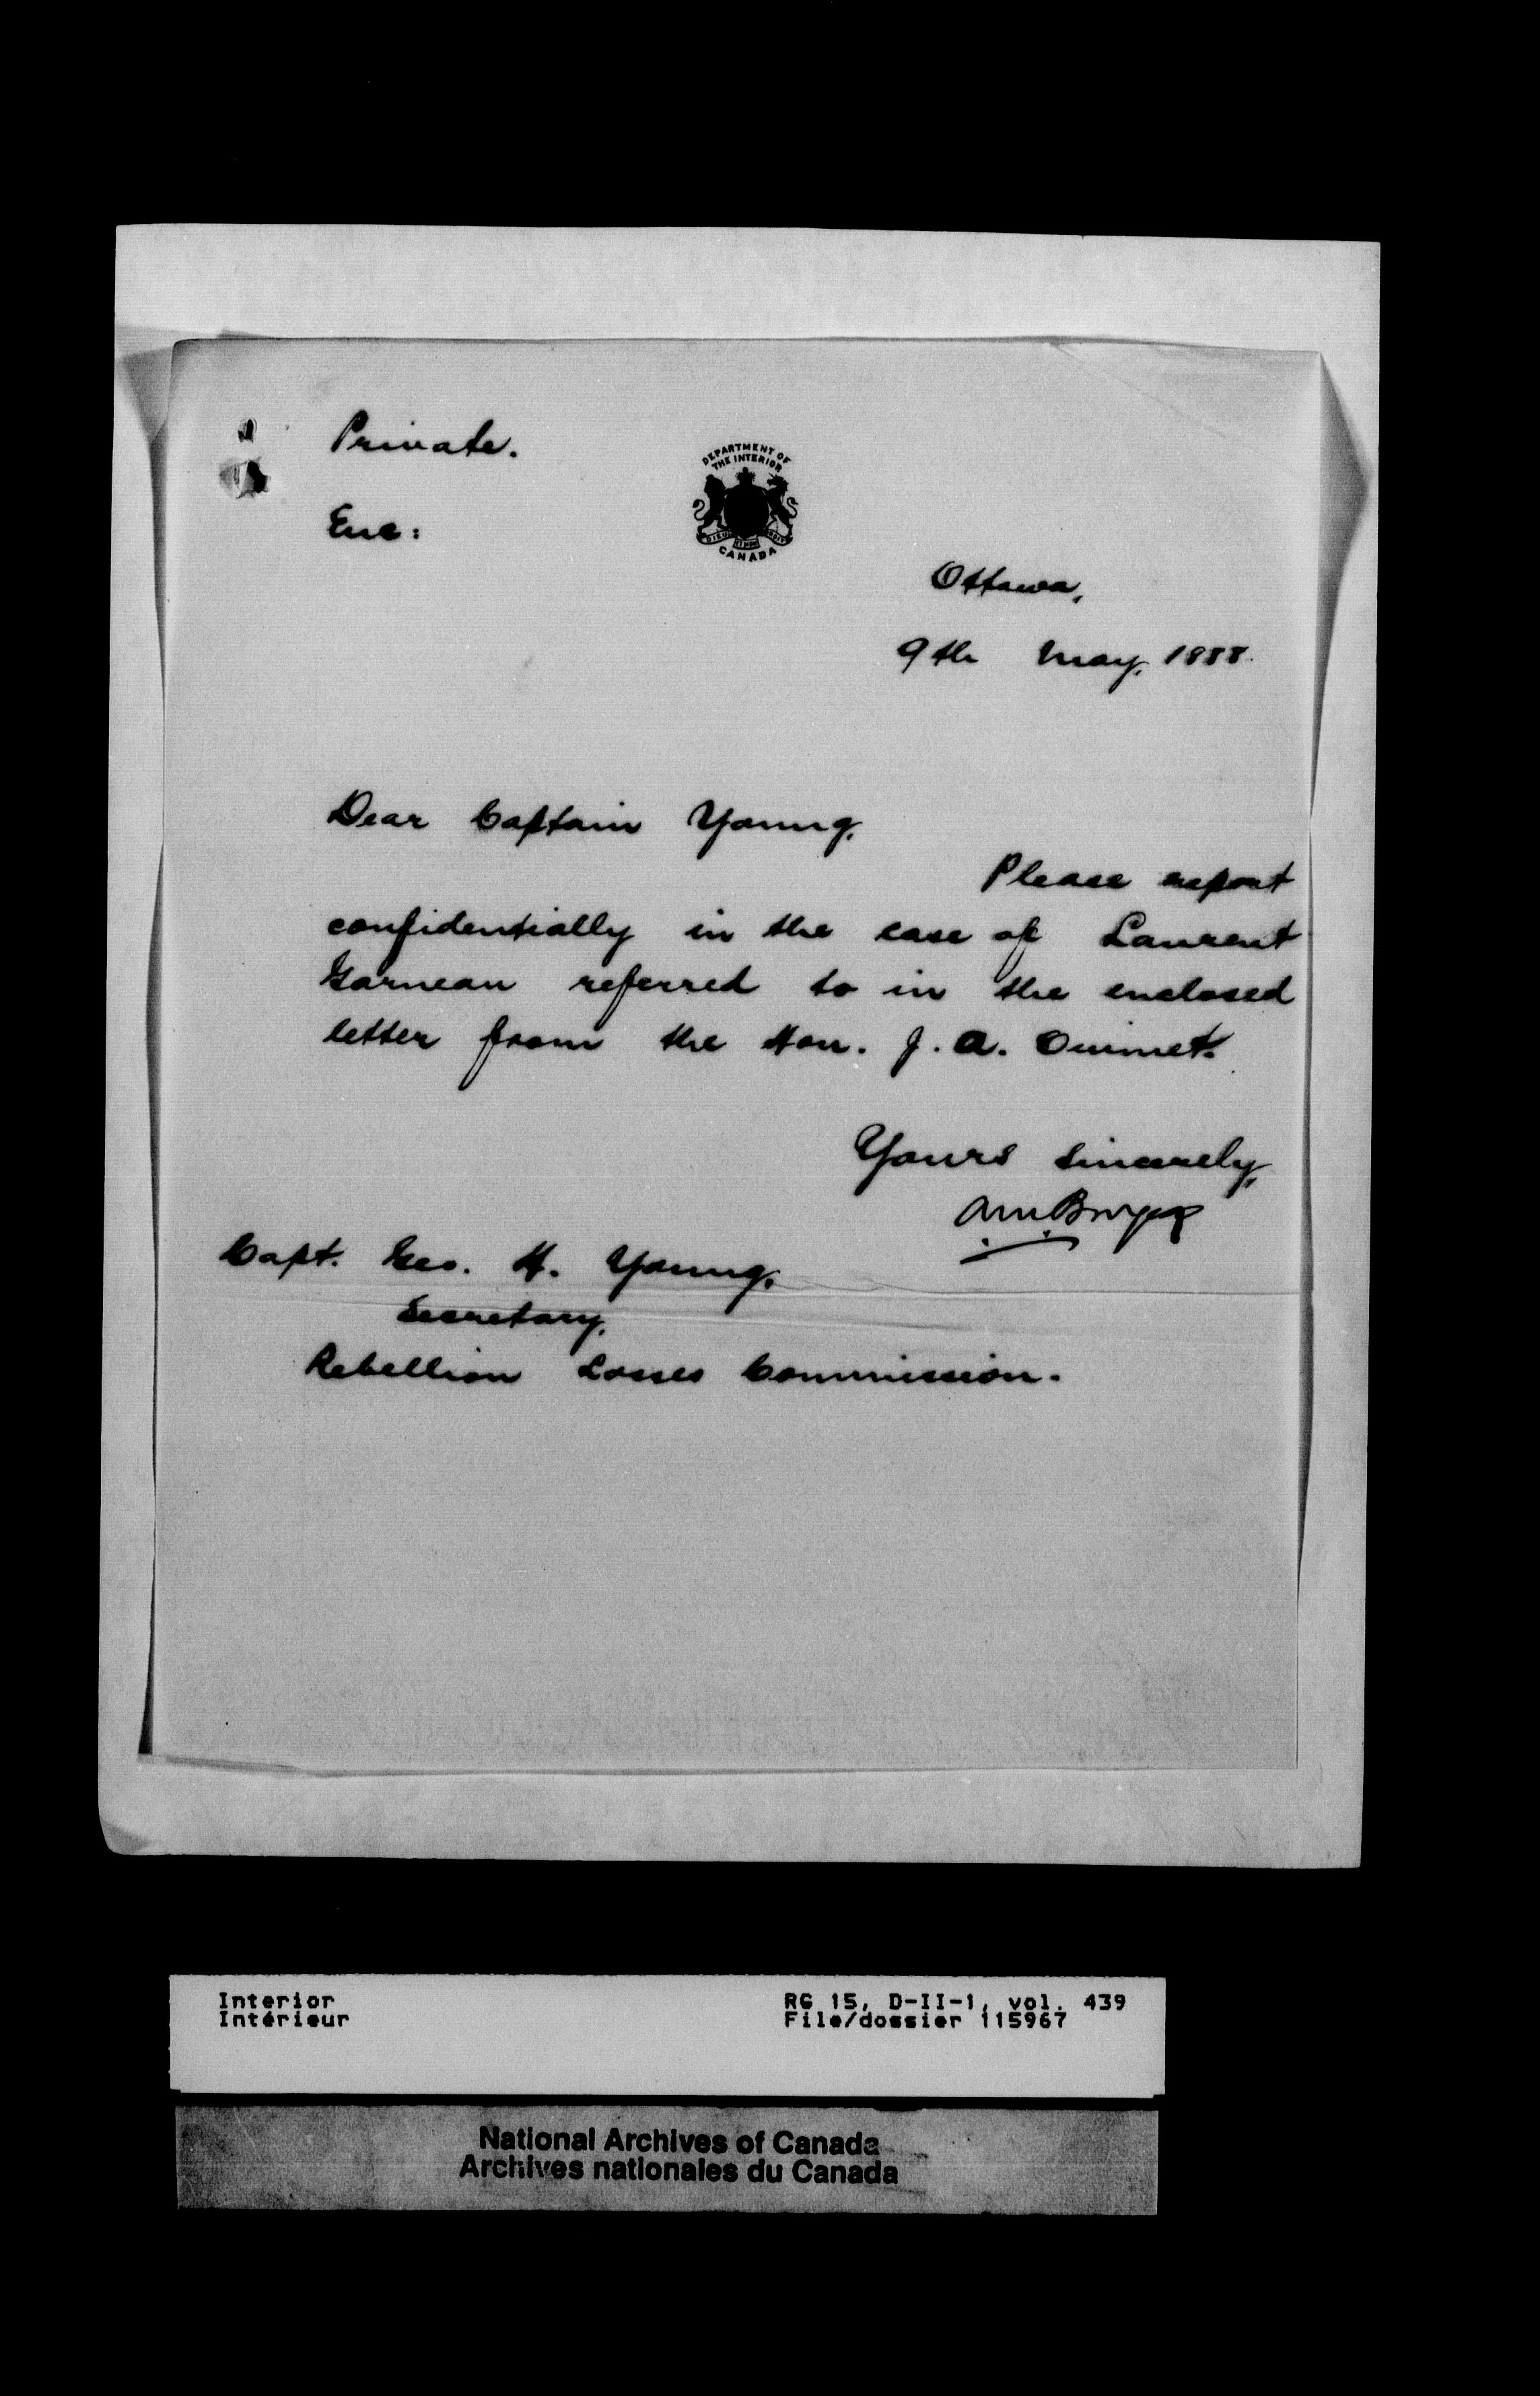 Private.
DEPARTMENT OF
THE INTERIOR
CANADA
Enc:
Ottawa,
9th May, 1888.
Dear Captain Young,
Please report
confidentially in the case of Laurent
Garneau referred to in the enclosed
letter from the Hon. J. A. Ouimet.
Yours sincerely,
Capt. Geo. H. Young,
Secretary,
Rebellion Losses Commission.
Interior
Intérieur
RG 15, D-II-1, vol. 439
File/dossier 115967
National Archives of Canada
Archives nationales du Canada